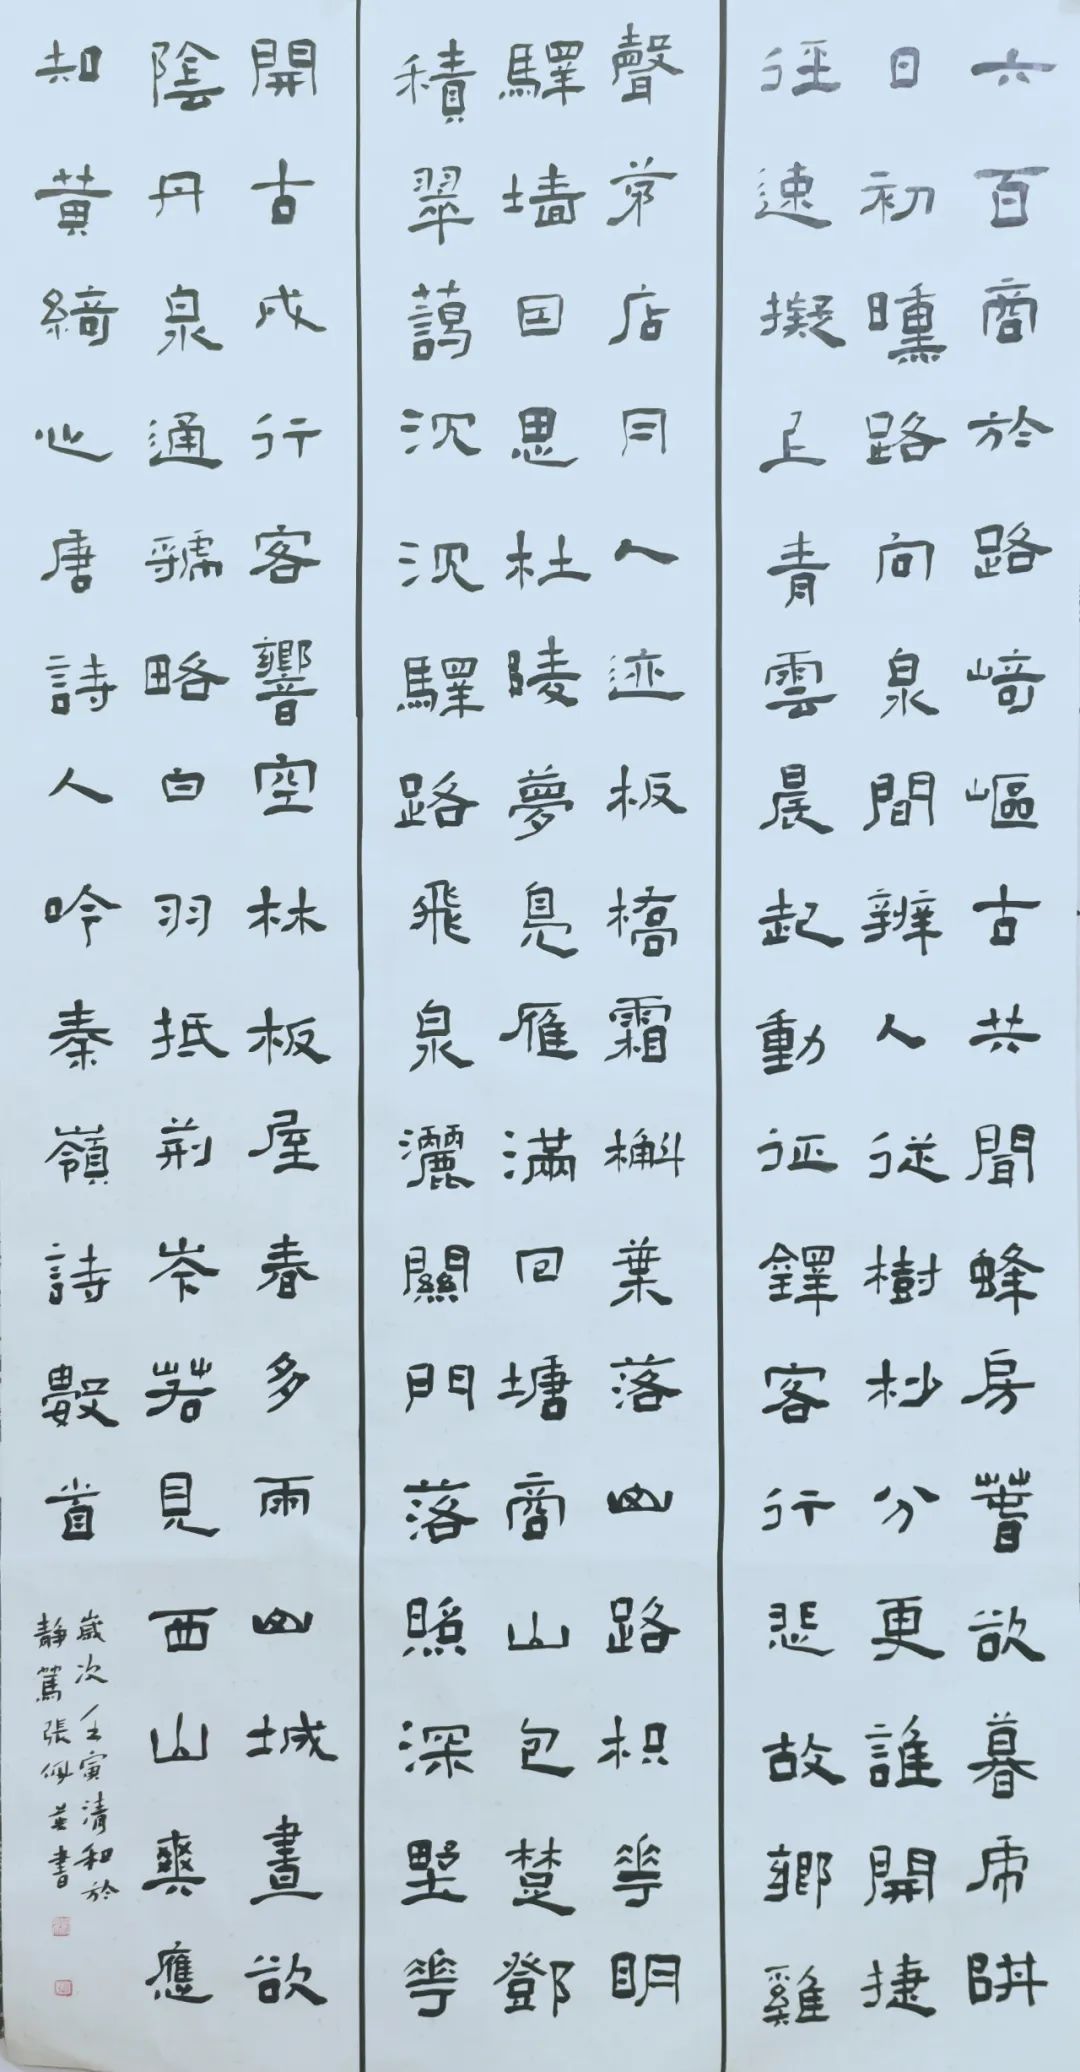 六百商於路崎嶇古共聞蜂房萅欲暮虎阱
日初曛路向泉間辨人從樹杪分更誰開捷
徑速擬上青雲晨起動征鐸客行悲故鄉雞
聲茅店月人迹板橋霜槲葉落山路枳花明
驛墻因思杜陵夢鳧雁滿回塘商山包楚鄧
積翠藹沉沉驛路飛泉灑關門落照深野花
開古戍行客響空林板屋春多雨山城晝欲
陰丹泉通虢略白羽抵荊岑若見西山爽應
知黃綺心唐詩人吟秦嶺詩數首
歲次壬寅清和於
靜篤張佩英書